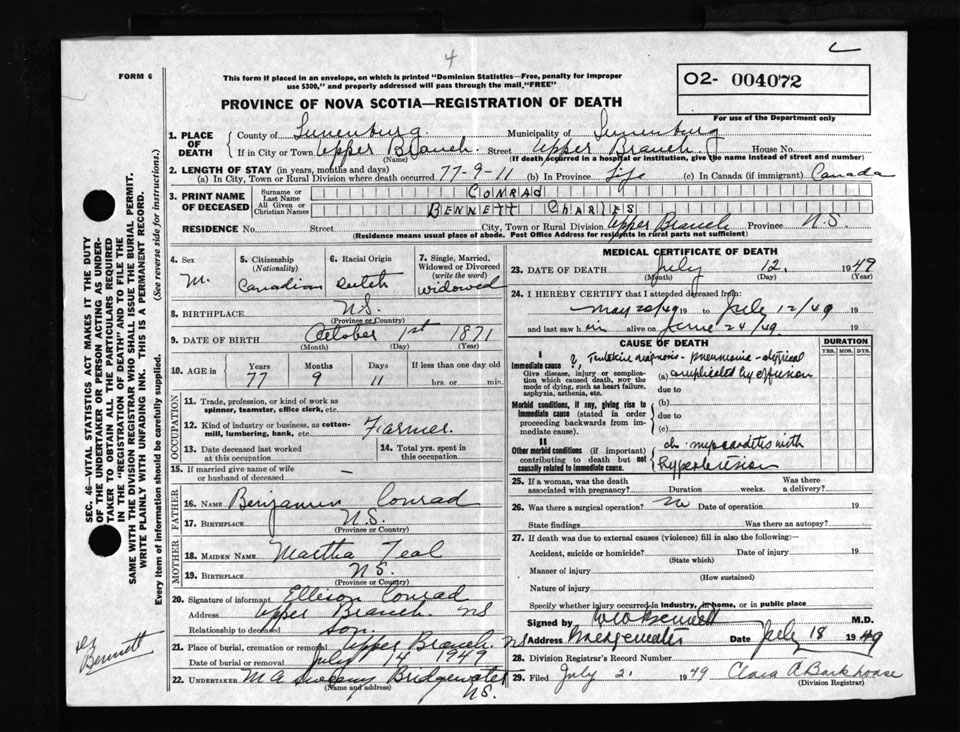 4
FORM 6
This form if placed in an envelope, on which is printed "Dominion Statistics—Free, penalty for improper
use $300," and properly addressed will pass through the mail "FREE"
02- 004072
For use of the Department only
PROVINCE OF NOVA SCOTIA—REGISTRATION OF DEATH
1. PLACE OF DEATH
County of Lunenburg Municipality of Lunenburg
If in City or Town Upper Branch Street Upper Branch House No.
(Name) (If death occurred in a hospital or institution, give the name instead of street and number)
2. LENGTH OF STAY (in years, months and days)
(a) In City, Town or Rural Division where death occurred 77-9-11 (b) In Province Life (c) In Canada (if immigrant) Canada
3. PRINT NAME OF DECEASED
Surname or Last Name CONRAD
All Given or Christian Names BENNETT CHARLES
RESIDENCE No. Street City, Town or Rural Division Upper Branch Province N.S.
(Residence means usual place of abode. Post Office Address for residents in rural parts not sufficient)
4. Sex M.
5. Citizenship (Nationality) Canadian
6. Racial Origin Dutch
7. Single, Married, Widowed or Divorced (write the word) Widowed
8. BIRTHPLACE N.S.
(Province or Country)
9. DATE OF BIRTH October 1st 1871
(Month) (Day) (Year)
10. AGE in Years Months Days If less than one day old
77 9 11 hrs. or min.
OCCUPATION
11. Trade, profession, or kind of work as
spinner, teamster, office clerk, etc.
12. Kind of industry or business, as cotton-
mill, lumbering, bank, etc. Farmer.
13. Date deceased last worked at this occupation
14. Total yrs. spent in this occupation
15. If married give name of wife
or husband of deceased —
FATHER
16. NAME Benjamin Conrad
17. BIRTHPLACE N.S.
(Province or Country)
MOTHER
18. MAIDEN NAME Martha Teal
19. BIRTHPLACE N.S.
(Province or Country)
20. Signature of informant Ellison Conrad
Address Upper Branch NS
Relationship to deceased son.
21. Place of burial, cremation or removal Upper Branch. NS
Date of burial or removal July 14 1949
22. UNDERTAKER M A Sweeny Bridgewater
(Name and address) N.S.
MEDICAL CERTIFICATE OF DEATH
23. DATE OF DEATH July 12. 1949
(Month) (Day) (Year)
24. I HEREBY CERTIFY that I attended deceased from:
May 20/49 19 to July 12/49 19
and last saw him alive on June 24/49 19
CAUSE OF DEATH
DURATION
YRS. MOS. DYS.
I
Immediate cause ? Tentative diagnosis - pneumonia - atypical
Give disease, injury or complica-
tion which caused death, not the
mode of dying, such as heart failure,
asphyxia, asthenia, etc.
(a) complicated by effusion
due to
Morbid conditions, if any, giving rise to
immediate cause (stated in order
proceeding backwards from im-
mediate cause).
(b)
due to
(c)
II
Other morbid conditions (if important)
contributing to death but not
causally related to immediate cause.
ch. myocarditis with
hypertension
25. If a woman, was the death
associated with pregnancy? Duration weeks. Was there a delivery?
26. Was there a surgical operation? No Date of operation 19
State findings Was there an autopsy?
27. If death was due to external causes (violence) fill in also the following:
Accident, suicide or homicide? Date of injury 19
(State which)
Manner of injury
(How sustained)
Nature of injury
Specify whether injury occurred in industry, in home, or in public place
Signed by Bennett M.D.
Address Bridgewater Date July 18 1949
28. Division Registrar's Record Number
29. Filed July 2. 1949 Clara A Barkhouse
(Division Registrar)
SEC. 46—VITAL STATISTICS ACT MAKES IT THE DUTY
OF THE UNDERTAKER OR PERSON ACTING AS UNDER-
TAKER TO OBTAIN ALL THE PARTICULARS REQUIRED
IN THE "REGISTRATION OF DEATH" AND TO FILE THE
SAME WITH THE DIVISION REGISTRAR WHO SHALL ISSUE THE BURIAL PERMIT.
WRITE PLAINLY WITH UNFADING INK. THIS IS A PERMANENT RECORD.
Every item of information should be carefully supplied. (See reverse side for instructions.)
Dr Bennett